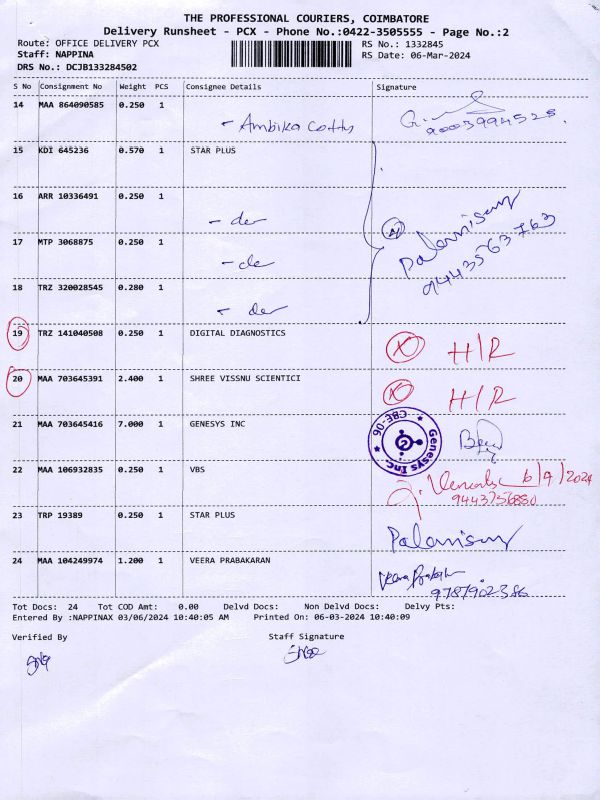 THE PROFESSIONAL COURIERS, COIMBATORE
Delivery Runsheet - PCX - Phone No.:0422-3505555 - Page No.:2
Route: OFFICE DELIVERY PCX RS No.: 1332845
Staff: NAPPINA RS Date: 06-Mar-2024
DRS No.: DCJB133284502
S No Consignment No Weight PCS Consignee Details Signature
14 MAA 864090585 0.250 1
- Ambika Cotts 9003994525.
15 KDI 645236 0.570 1 STAR PLUS
16 ARR 10336491 0.250 1
- do Palanisamy
17 MTP 3068875 0.250 1 9443563763
- do
18 TRZ 320028545 0.280 1
- do
19 TRZ 141040508 0.250 1 DIGITAL DIAGNOSTICS
X H/R
20 MAA 703645391 2.400 1 SHREE VISSNU SCIENTICI
X H/R
21 MAA 703645416 7.000 1 GENESYS INC
Genesys Inc ★ CBE-06 ★
22 MAA 106932835 0.250 1 VBS
6/9/2024
9443756880
23 TRP 19389 0.250 1 STAR PLUS
Palanisamy
24 MAA 104249974 1.200 1 VEERA PRABAKARAN
Veera Prabakar
9787902386
Tot Docs: 24 Tot COD Amt: 0.00 Delvd Docs: Non Delvd Docs: Delvy Pts:
Entered By :NAPPINAX 03/06/2024 10:40:05 AM Printed On: 06-03-2024 10:40:09
Verified By Staff Signature